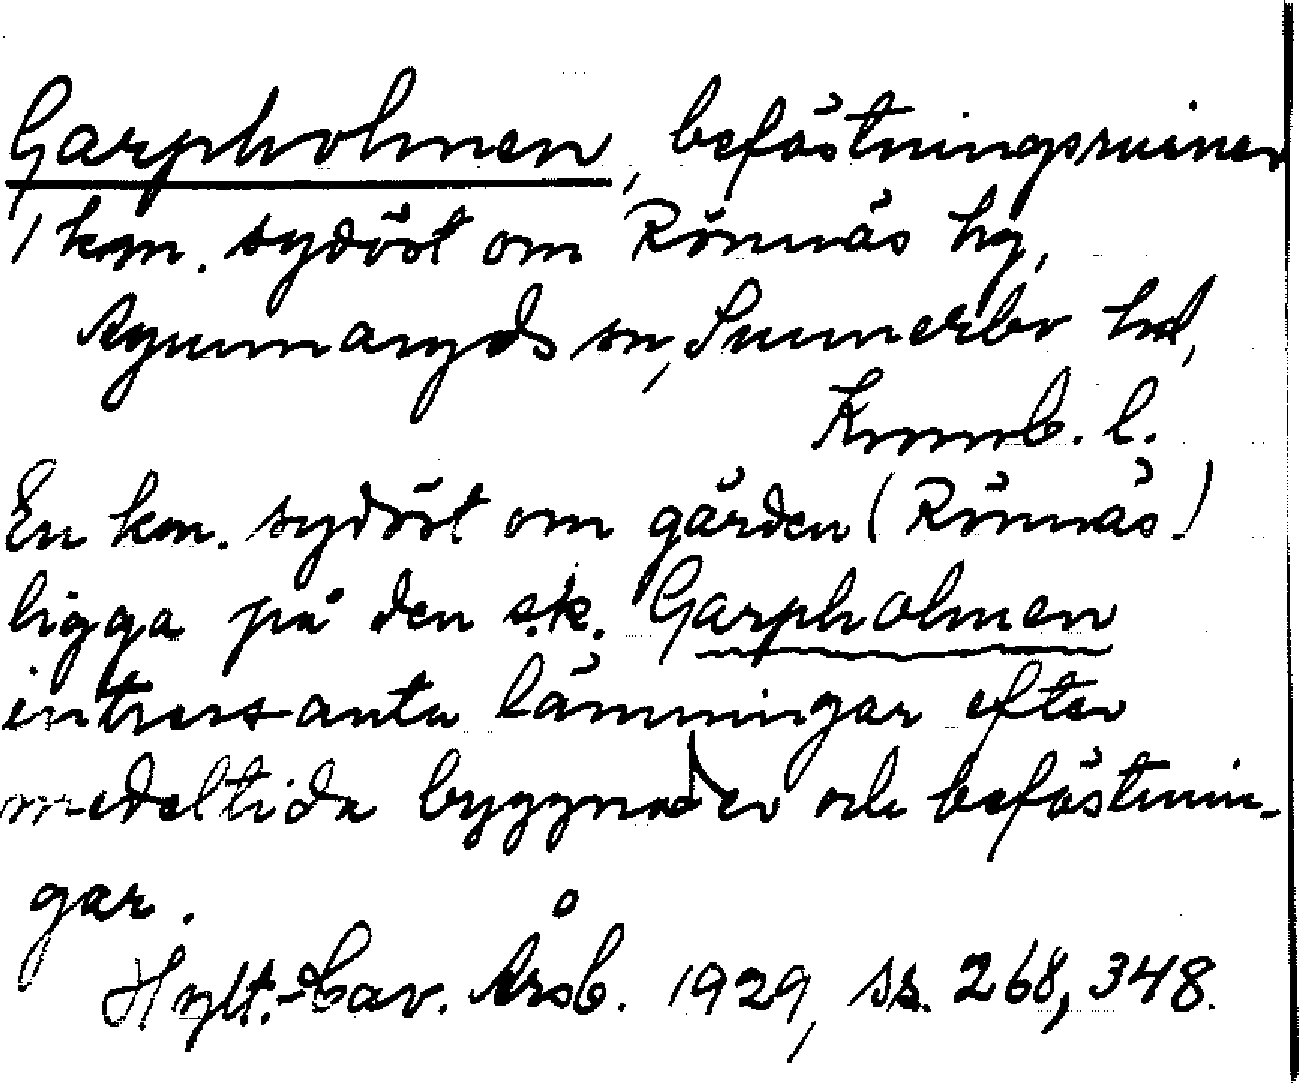 Garpholmen, befästningsruiner
1 km. sydöst om Rönnäs hg,
Agunnaryds sn, Sunnerbo hd,
Kronob. l.
En km. sydöst om gården (Rönnäs)
ligga på den s.k. Garpholmen
intressanta lämningar efter
medeltida byggnader och befästnin-
gar.
Hylt.-Cav. Årsb. 1929, ss. 268, 348.